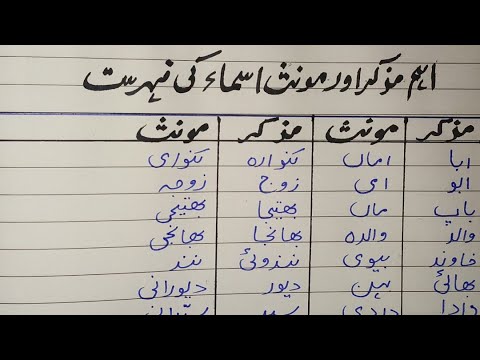 اہم مذکر اور مونث اسماء کی فہرست
مذکر مونث مذکر مونث
ابا اماں کنوارہ کنواری
ابو امی زوج زوجہ
باپ ماں بھتیجا بھتیجی
والد والدہ بھانجا بھانجی
خاوند بیوی نندوئی نند
بھائی بہن دیور دیورانی
دادا دادی